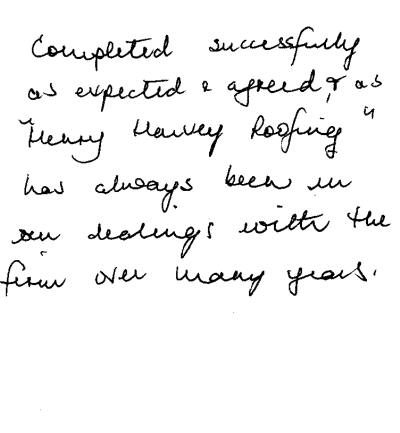 Completed successfully
as expected & agreed, & as
"Henry Harvey Roofing"
has always been in
our dealings with the
firm over many years.